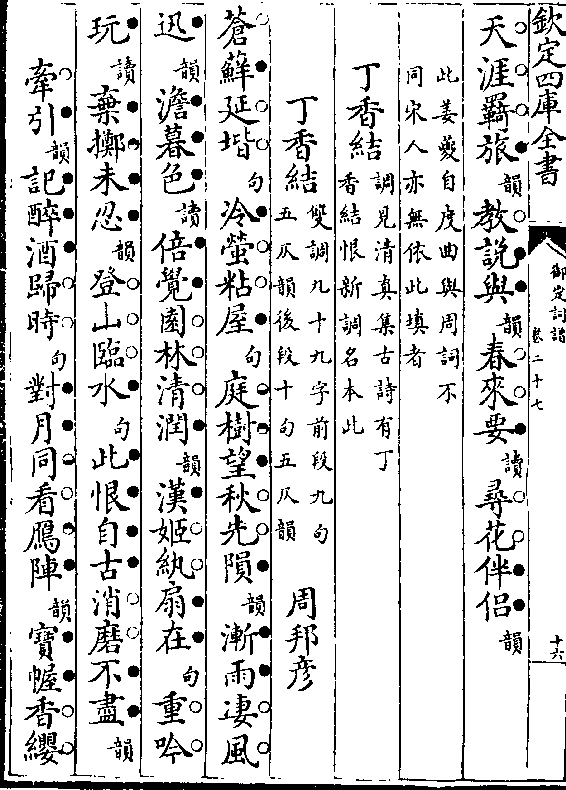 欽定四庫全書
御定詞譜
卷二十七
十六
天涯羈旅韻教説與韻春來要讀尋花伴侣韻
此姜夔自度曲與周詞不
同宋人亦無依此填者
丁香結調見清真集古詩有丁
香結恨新調名本此
丁香結雙調九十九字前段九句
五仄韻後段十句五仄韻
周邦彦
蒼蘚延堦句冷螢粘屋句庭樹望秋先隕韻漸雨凄風
迅韻澹暮色讀倍覺園林清潤韻漢姬紈扇在句重吟
玩讀棄擲未忍韻登山臨水句此恨自古消磨不盡韻
牽引韻記醉酒歸時句對月同看鴈陣韻寶幄香纓